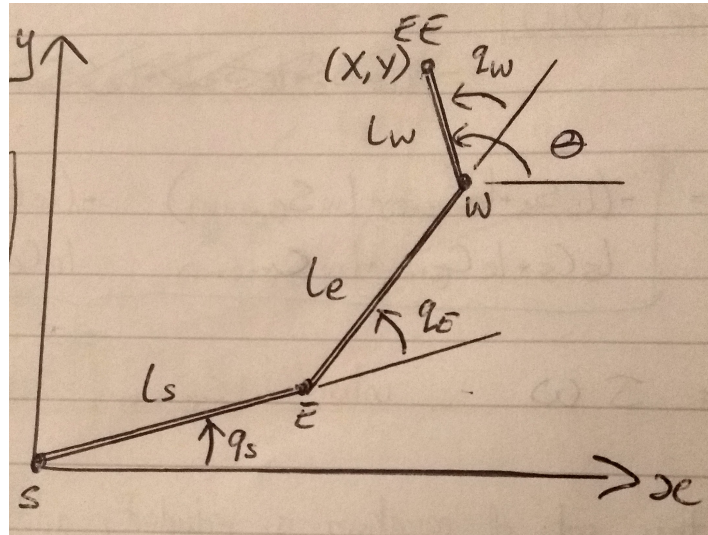 y
EE
(X,Y)
qw
lw
θ
W
le
qE
ls
E
qs
S
x